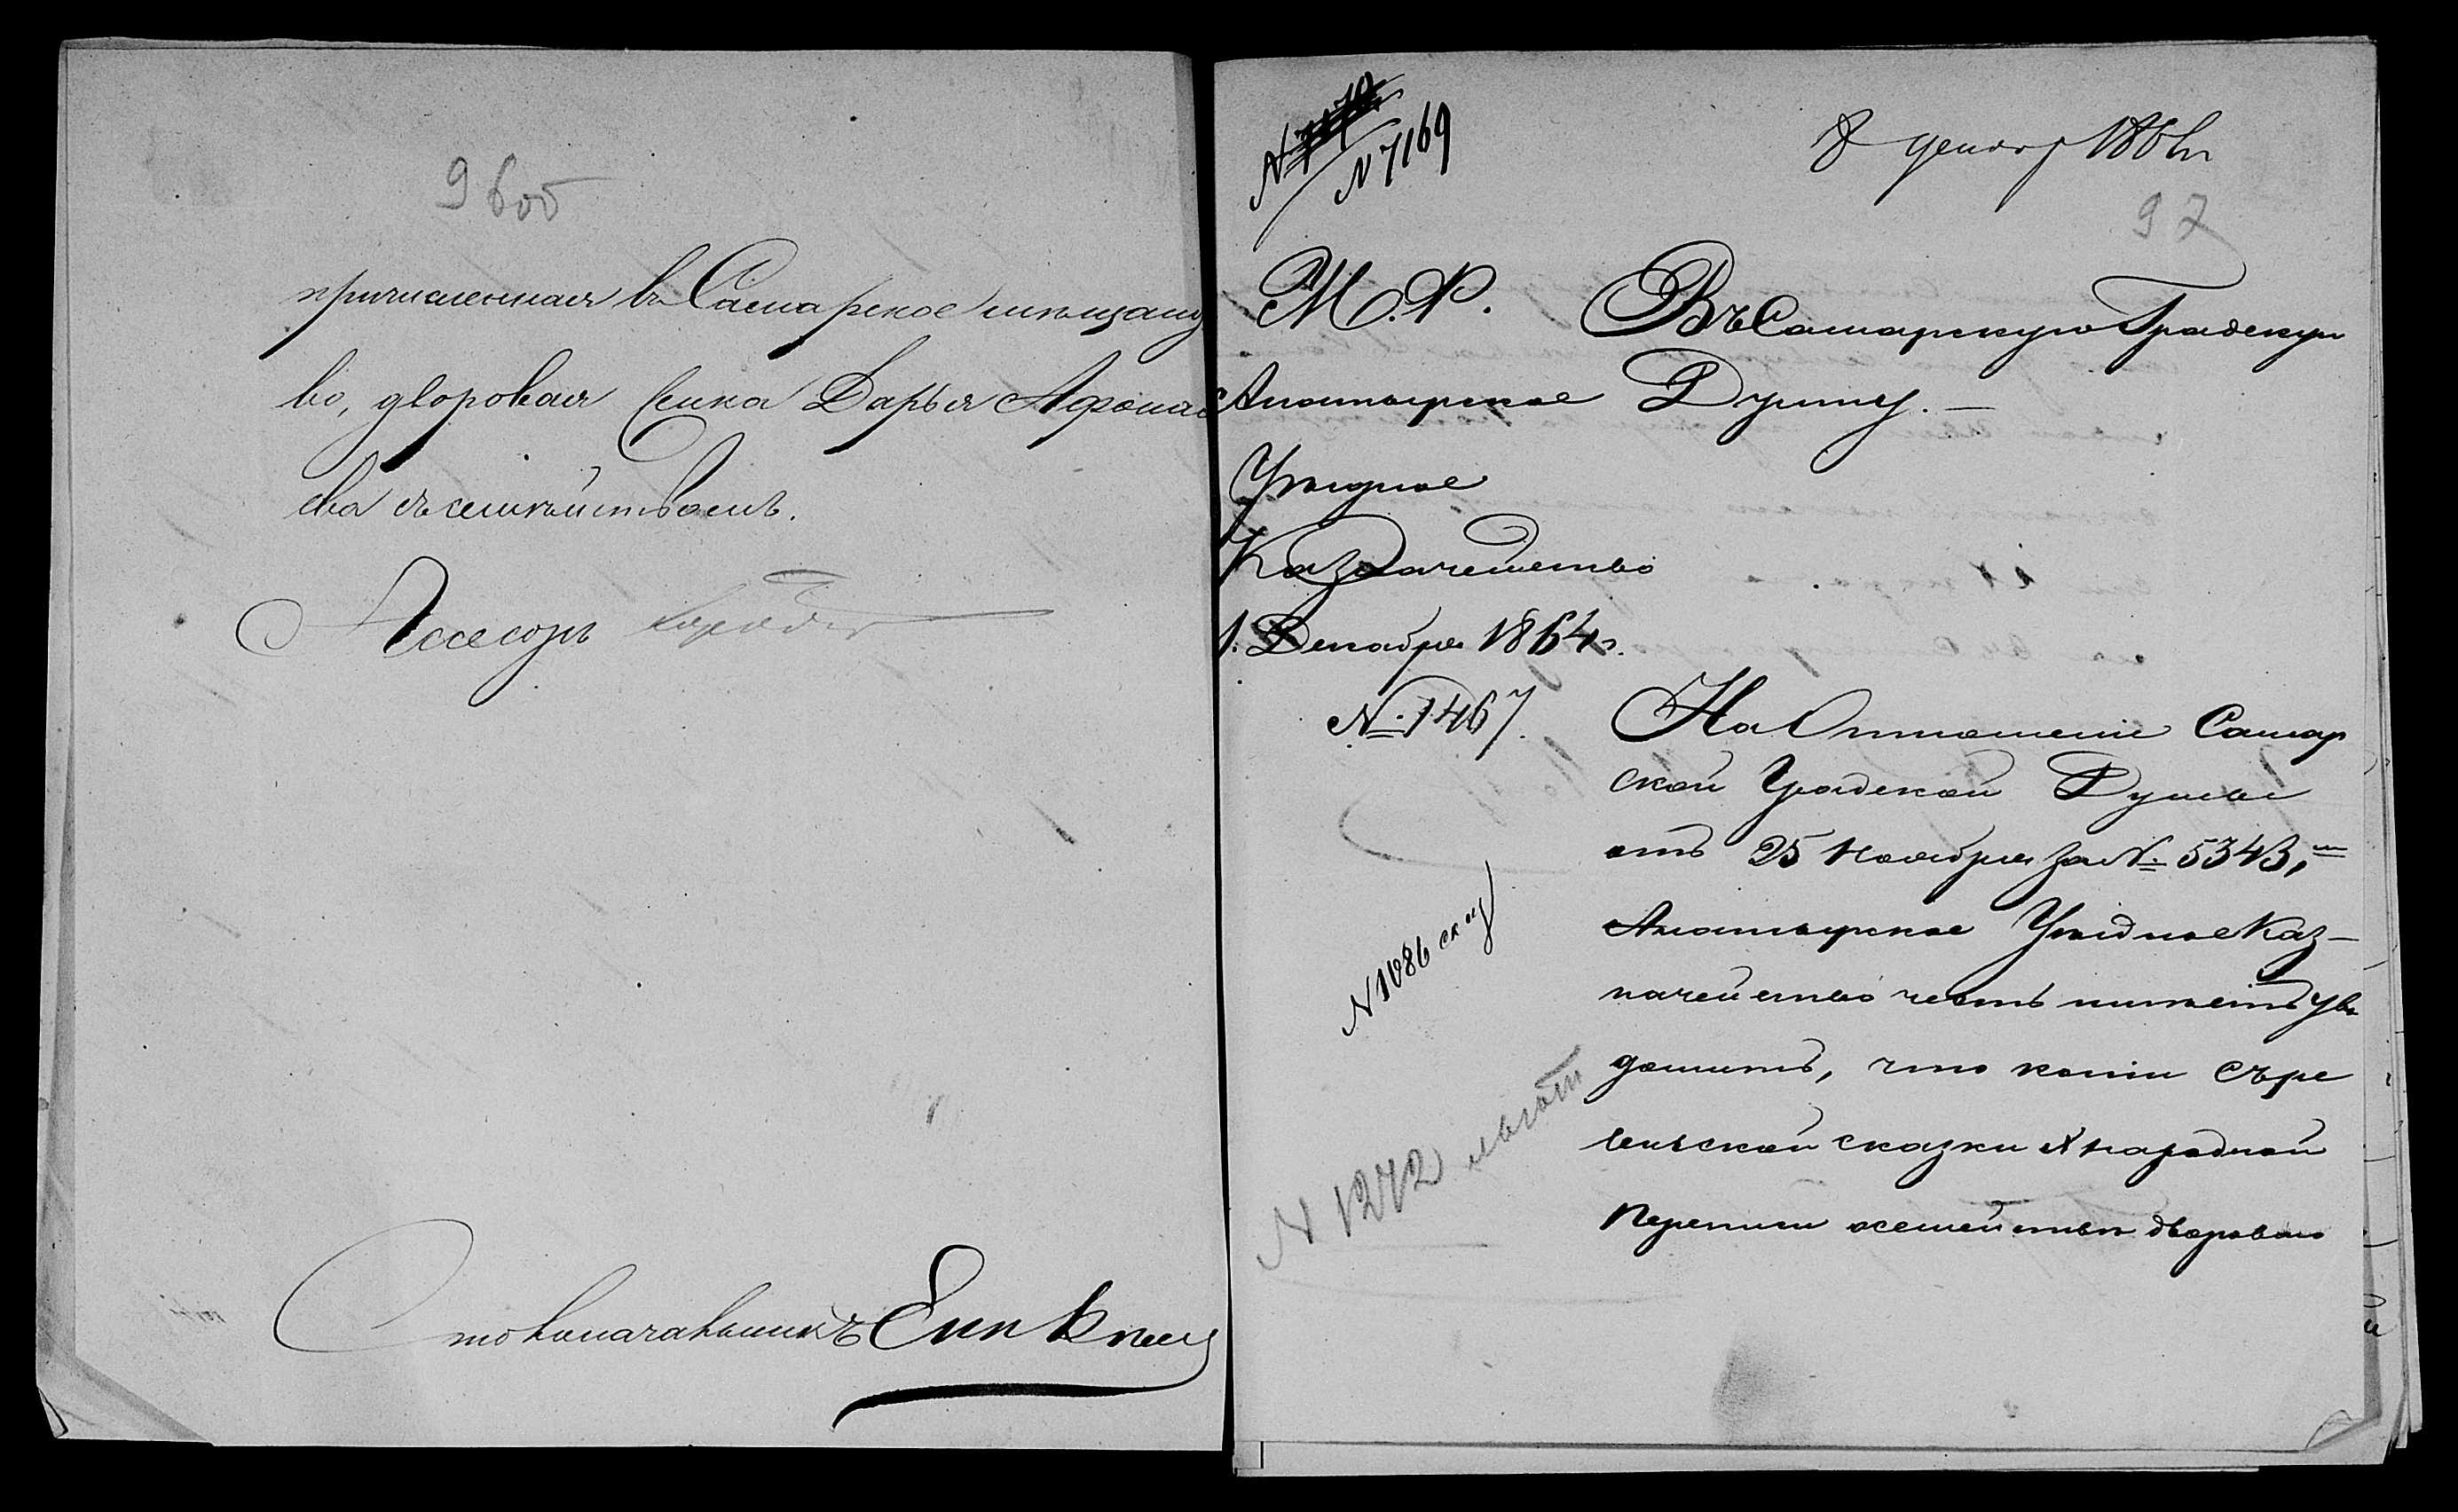 96 об
причисленная въ Самарское мѣщанст
во, дворовая Семка Дарья Афонась
ева съ семѣйствомъ.
Ассесоръ
Столоначальникъ
N 7169
8 декабр 1864 г
97
М. Ф.
Алатырское
Уѣздное
Казначейство
1. Декабря 1864 г.
№ 1467.
Въ Самарскую Градскую
Думу. —
На Отношеніе Самар
ской Градской Думы
отъ 25 Ноября за № 5343,
Алатырское Уѣздное Каз-
начейство честь имѣетъ уве
домить, что копіи съ ре
визской сказки X народной
Переписи о семействе двороваго
N 1086
N 1272